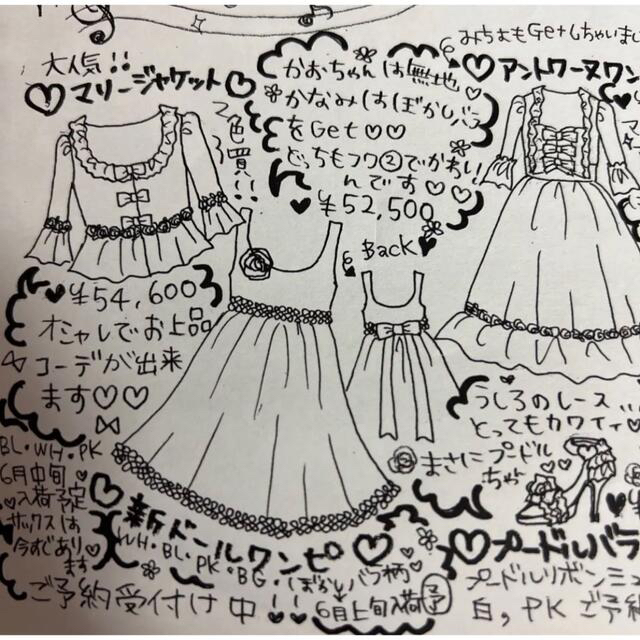 大人気!!
♡マリージャケット♡
2色買!!
¥54,600
オシャレでお上品
コーデが出来
ます♡♡
BL・WH・PK
6月中旬
入荷予定
サックスは
今すぐあり
ます
かおちゃんは無地
かなみはぼかしバラ
をGet♡♡
どっちもフワ②でかわいい
んです♡♡
¥52,500
Back
♡新ドールワンピ♡
WH・BL・PK・BG・ぼかしバラ柄
6月上旬入荷予
ご予約受付け中!!
みちよもGetしちゃいまし
♡アントワーヌワン
うしろのレース...
とってもカワイイ
まさにプードル
ちゃん
♡プードルバラ
プードルリボンミュ
白,PKご予約